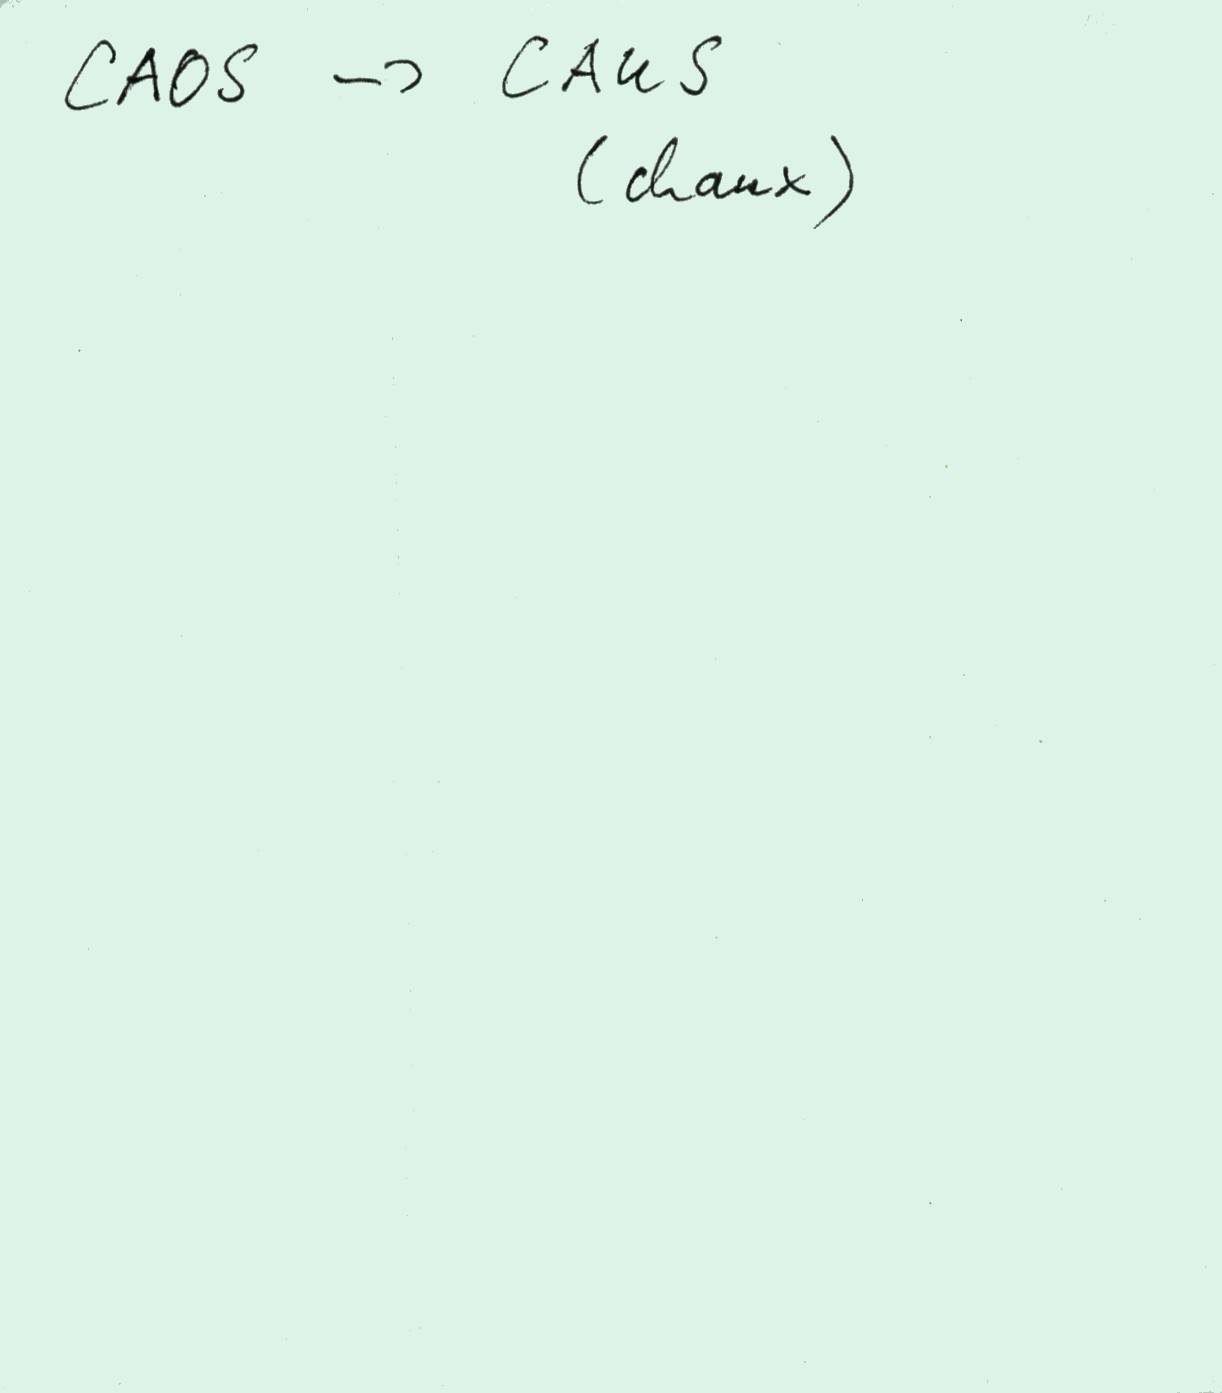 CAOS -> CAUS
(chaux)